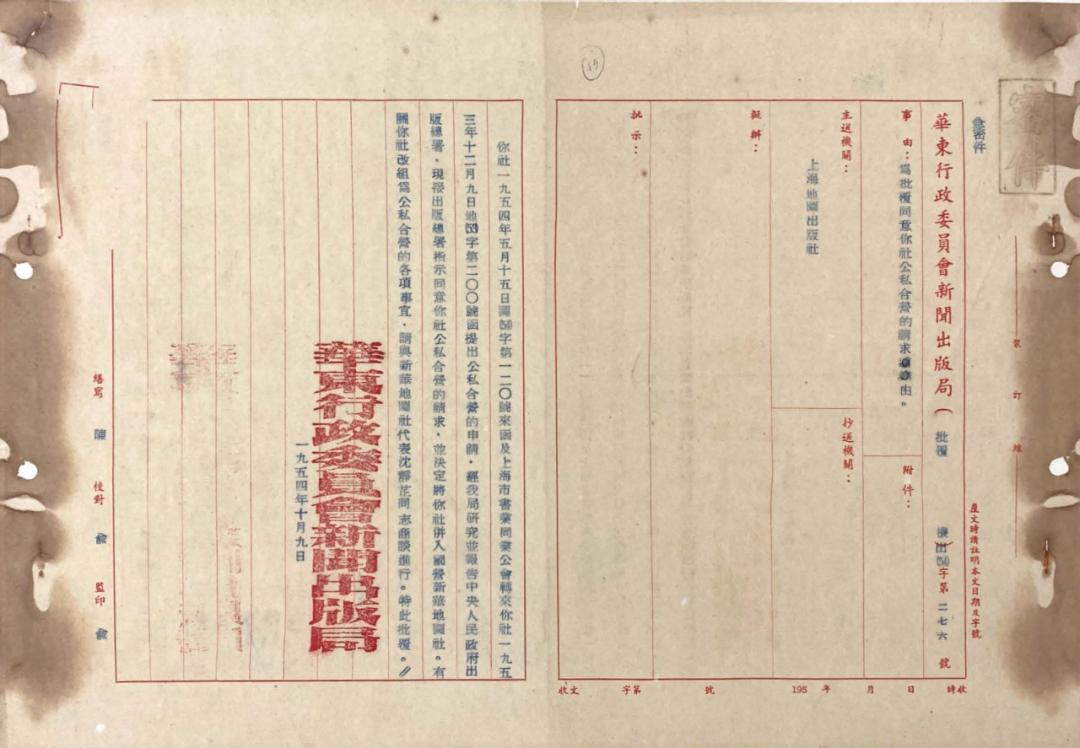 密件
急密件
裝訂線
覆文時請註明本文日期及字號
華東行政委員會新聞出版局（批覆）
出(54)字第二七六號
事由：為批覆同意你社公私合營的請求 由。
附件：
主送機關：
上海地圖出版社
抄送機關：
擬辦：
批示：
收文 字第 號 195 年 月 日 時收
你社一九五四年五月十五日圖(54)字第一二〇號來函及上海市書業同業公會轉來你社一九五
三年十二月九日地(53)字第二〇〇號函提出公私合營的申請，經我局研究並報告中央人民政府出
版總署，現接出版總署指示同意你社公私合營的請求，並決定將你社併入國營新華地圖社。有
關你社改組為公私合營的各項事宜，請與新華地圖社代表沈靜芷同志商談進行。特此批覆。
華東行政委員會新聞出版局
一九五四年十月九日
繕寫 陳 校對 俞 監印 俞